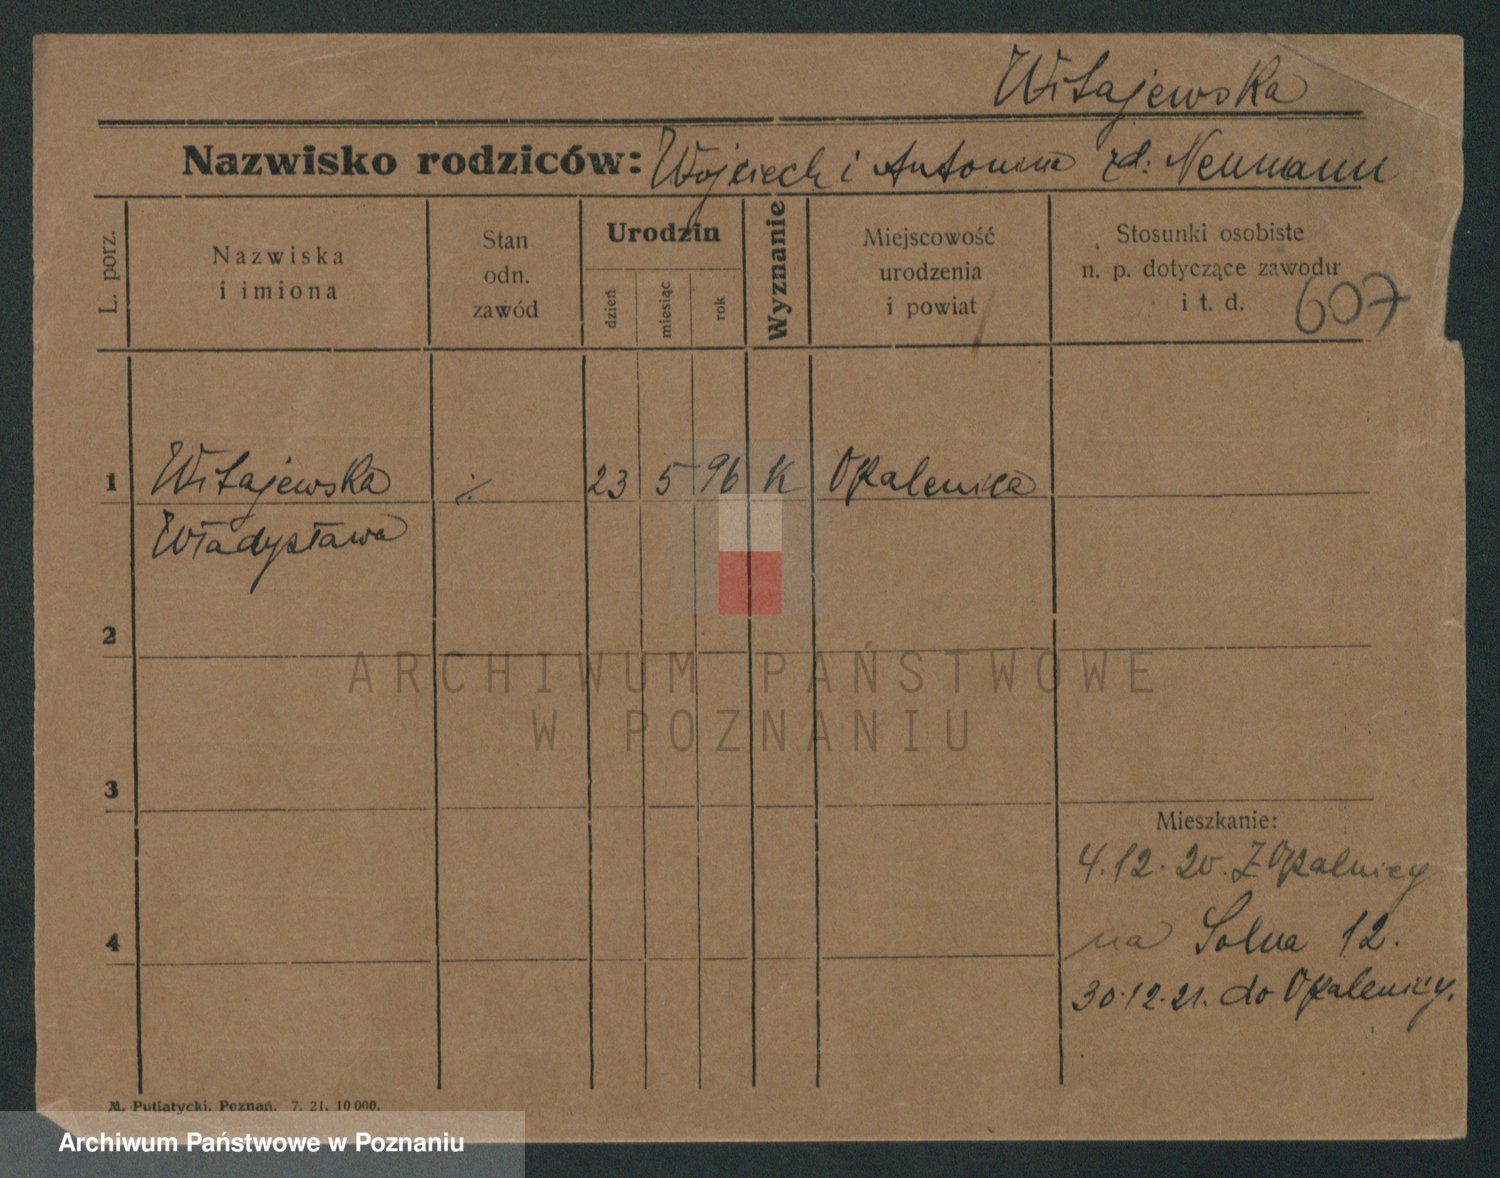 Witajewska
Nazwisko rodziców: Wojciech i Antonina zd. Neumann
L. porz.
Nazwiska
i imiona
Stan
odn.
zawód
Urodzin
dzień
miesiąc
rok
Wyznanie
Miejscowość
urodzenia
i powiat
Stosunki osobiste
n. p. dotyczące zawodu
i t. d.
607
1 Witajewska ·/. 23 5 96 K Opalenica
Władysława
2
ARCHIWUM PAŃSTWOWE
W POZNANIU
3
Mieszkanie:
4.12.20. Z Opalnicy
4
na Solna 12.
30.12.21. do Opalenicy.
M. Putiatycki, Poznań. 7. 21. 10 000.
Archiwum Państwowe w Poznaniu